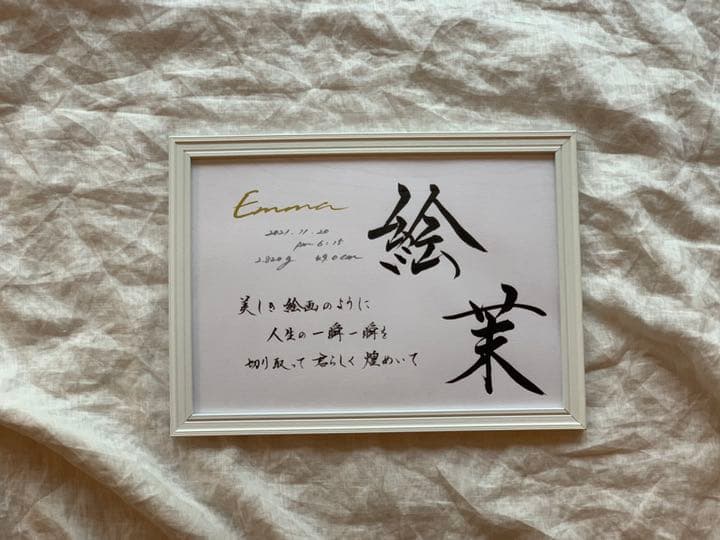 Emma
2021.11.20
pm 6:15
2.820g 49.0cm
絵茉
美しき絵画のように
人生の一瞬一瞬を
切り取って君らしく煌めいて